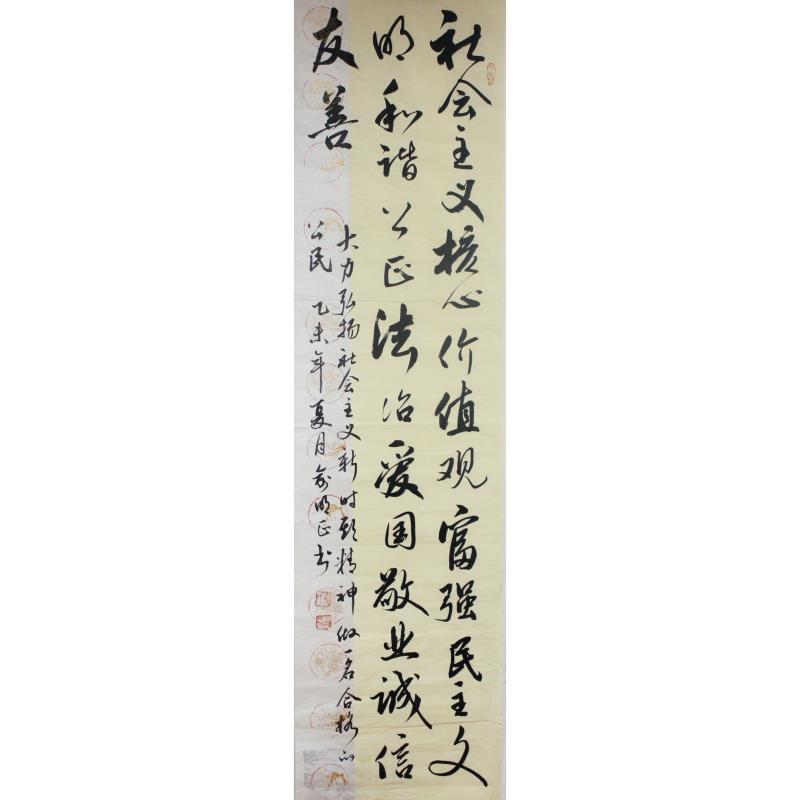 社会主义核心价值观富强民主文
明和谐公正法治爱国敬业诚信
友善
大力弘扬社会主义新时代精神做一名合格的
公民 乙未年夏月俞明正书